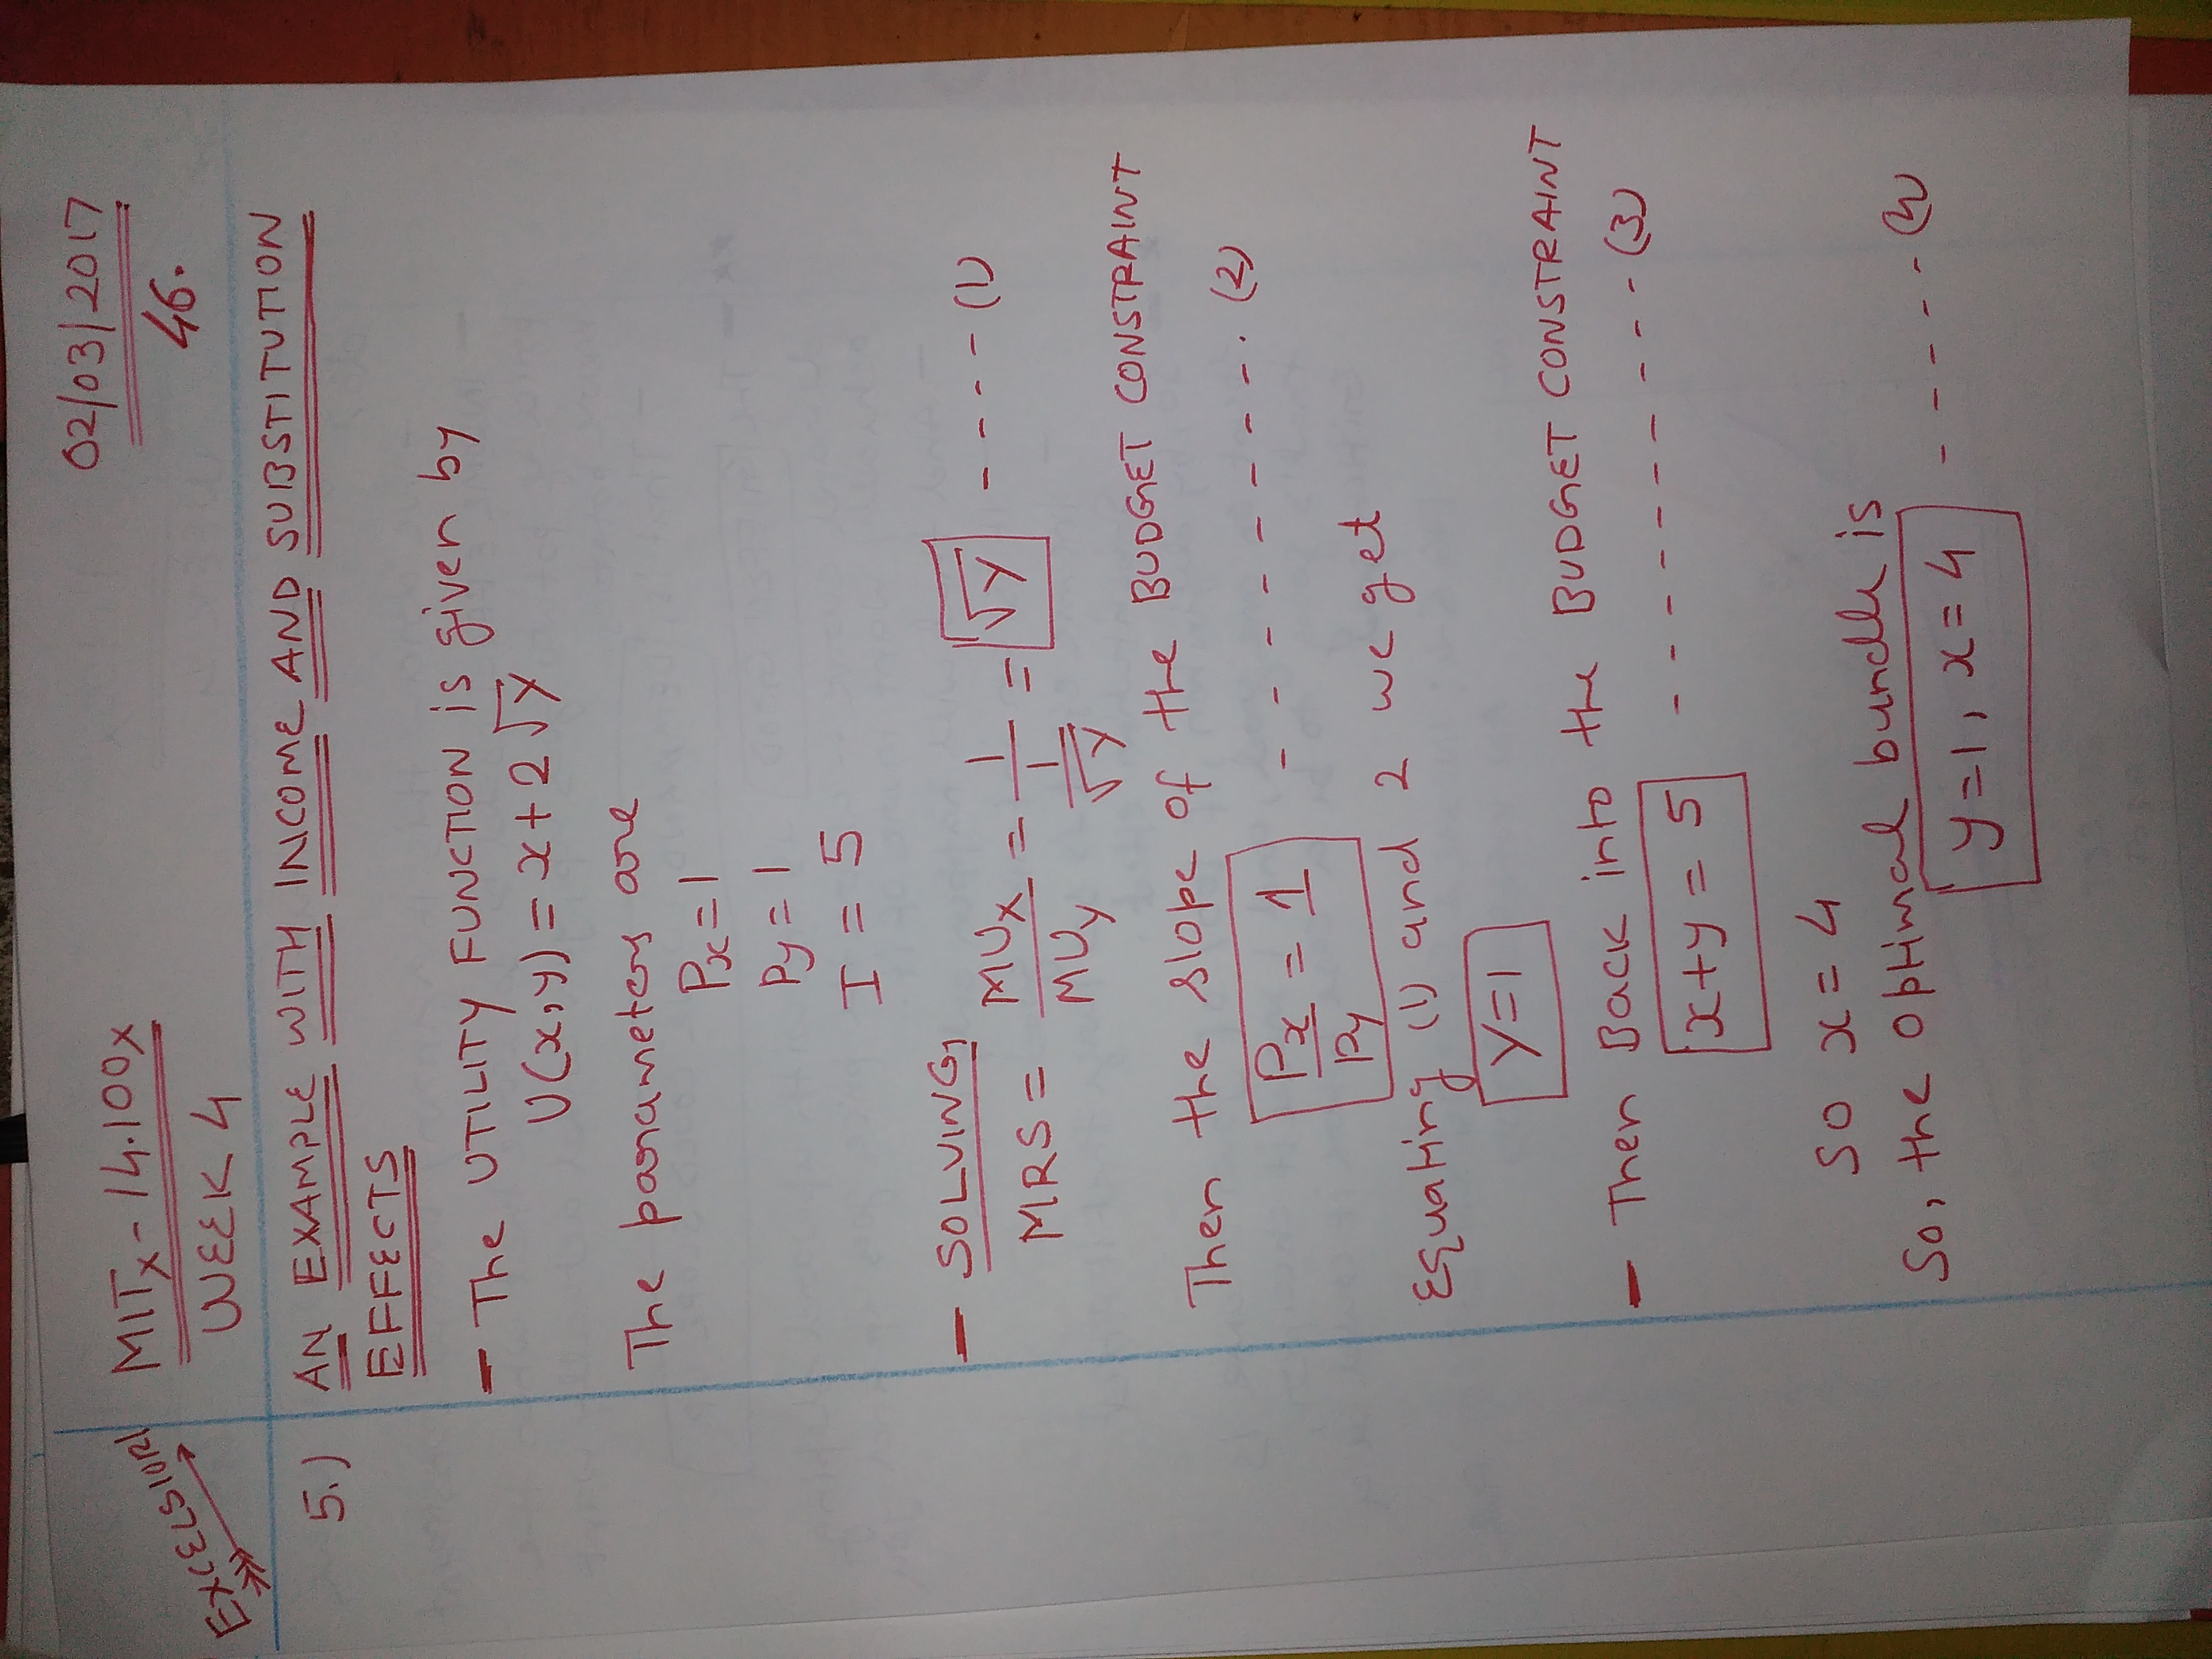 EXCELSIOR!
MITx - 14.100x
WEEK 4
02/03/2017
46.
5.) AN EXAMPLE WITH INCOME AND SUBSTITUTION
EFFECTS
- The UTILITY FUNCTION is given by
U(x,y) = x + 2√y
The parameters are
Px = 1
Py = 1
I = 5
- SOLVING,
MRS = MUx/MUy = 1/(1/√y) = √y ---- (1)
Then the slope of the BUDGET CONSTRAINT
Px/Py = 1 -------- (2)
Equating (1) and 2 we get
y=1
- Then Back into the BUDGET CONSTRAINT
x+y = 5 ---------- (3)
So x = 4
So, the optimal bundle is
y=1, x=4 ----- (4)